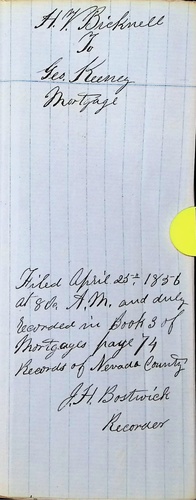 H. V. Bicknell
To
Geo. Keeney
Mortgage
Filed April 25th 1856
at 8 h A.M. and duly
recorded in Book 3 of
Mortgages page 74
Records of Nevada County
J. H. Bostwick
Recorder